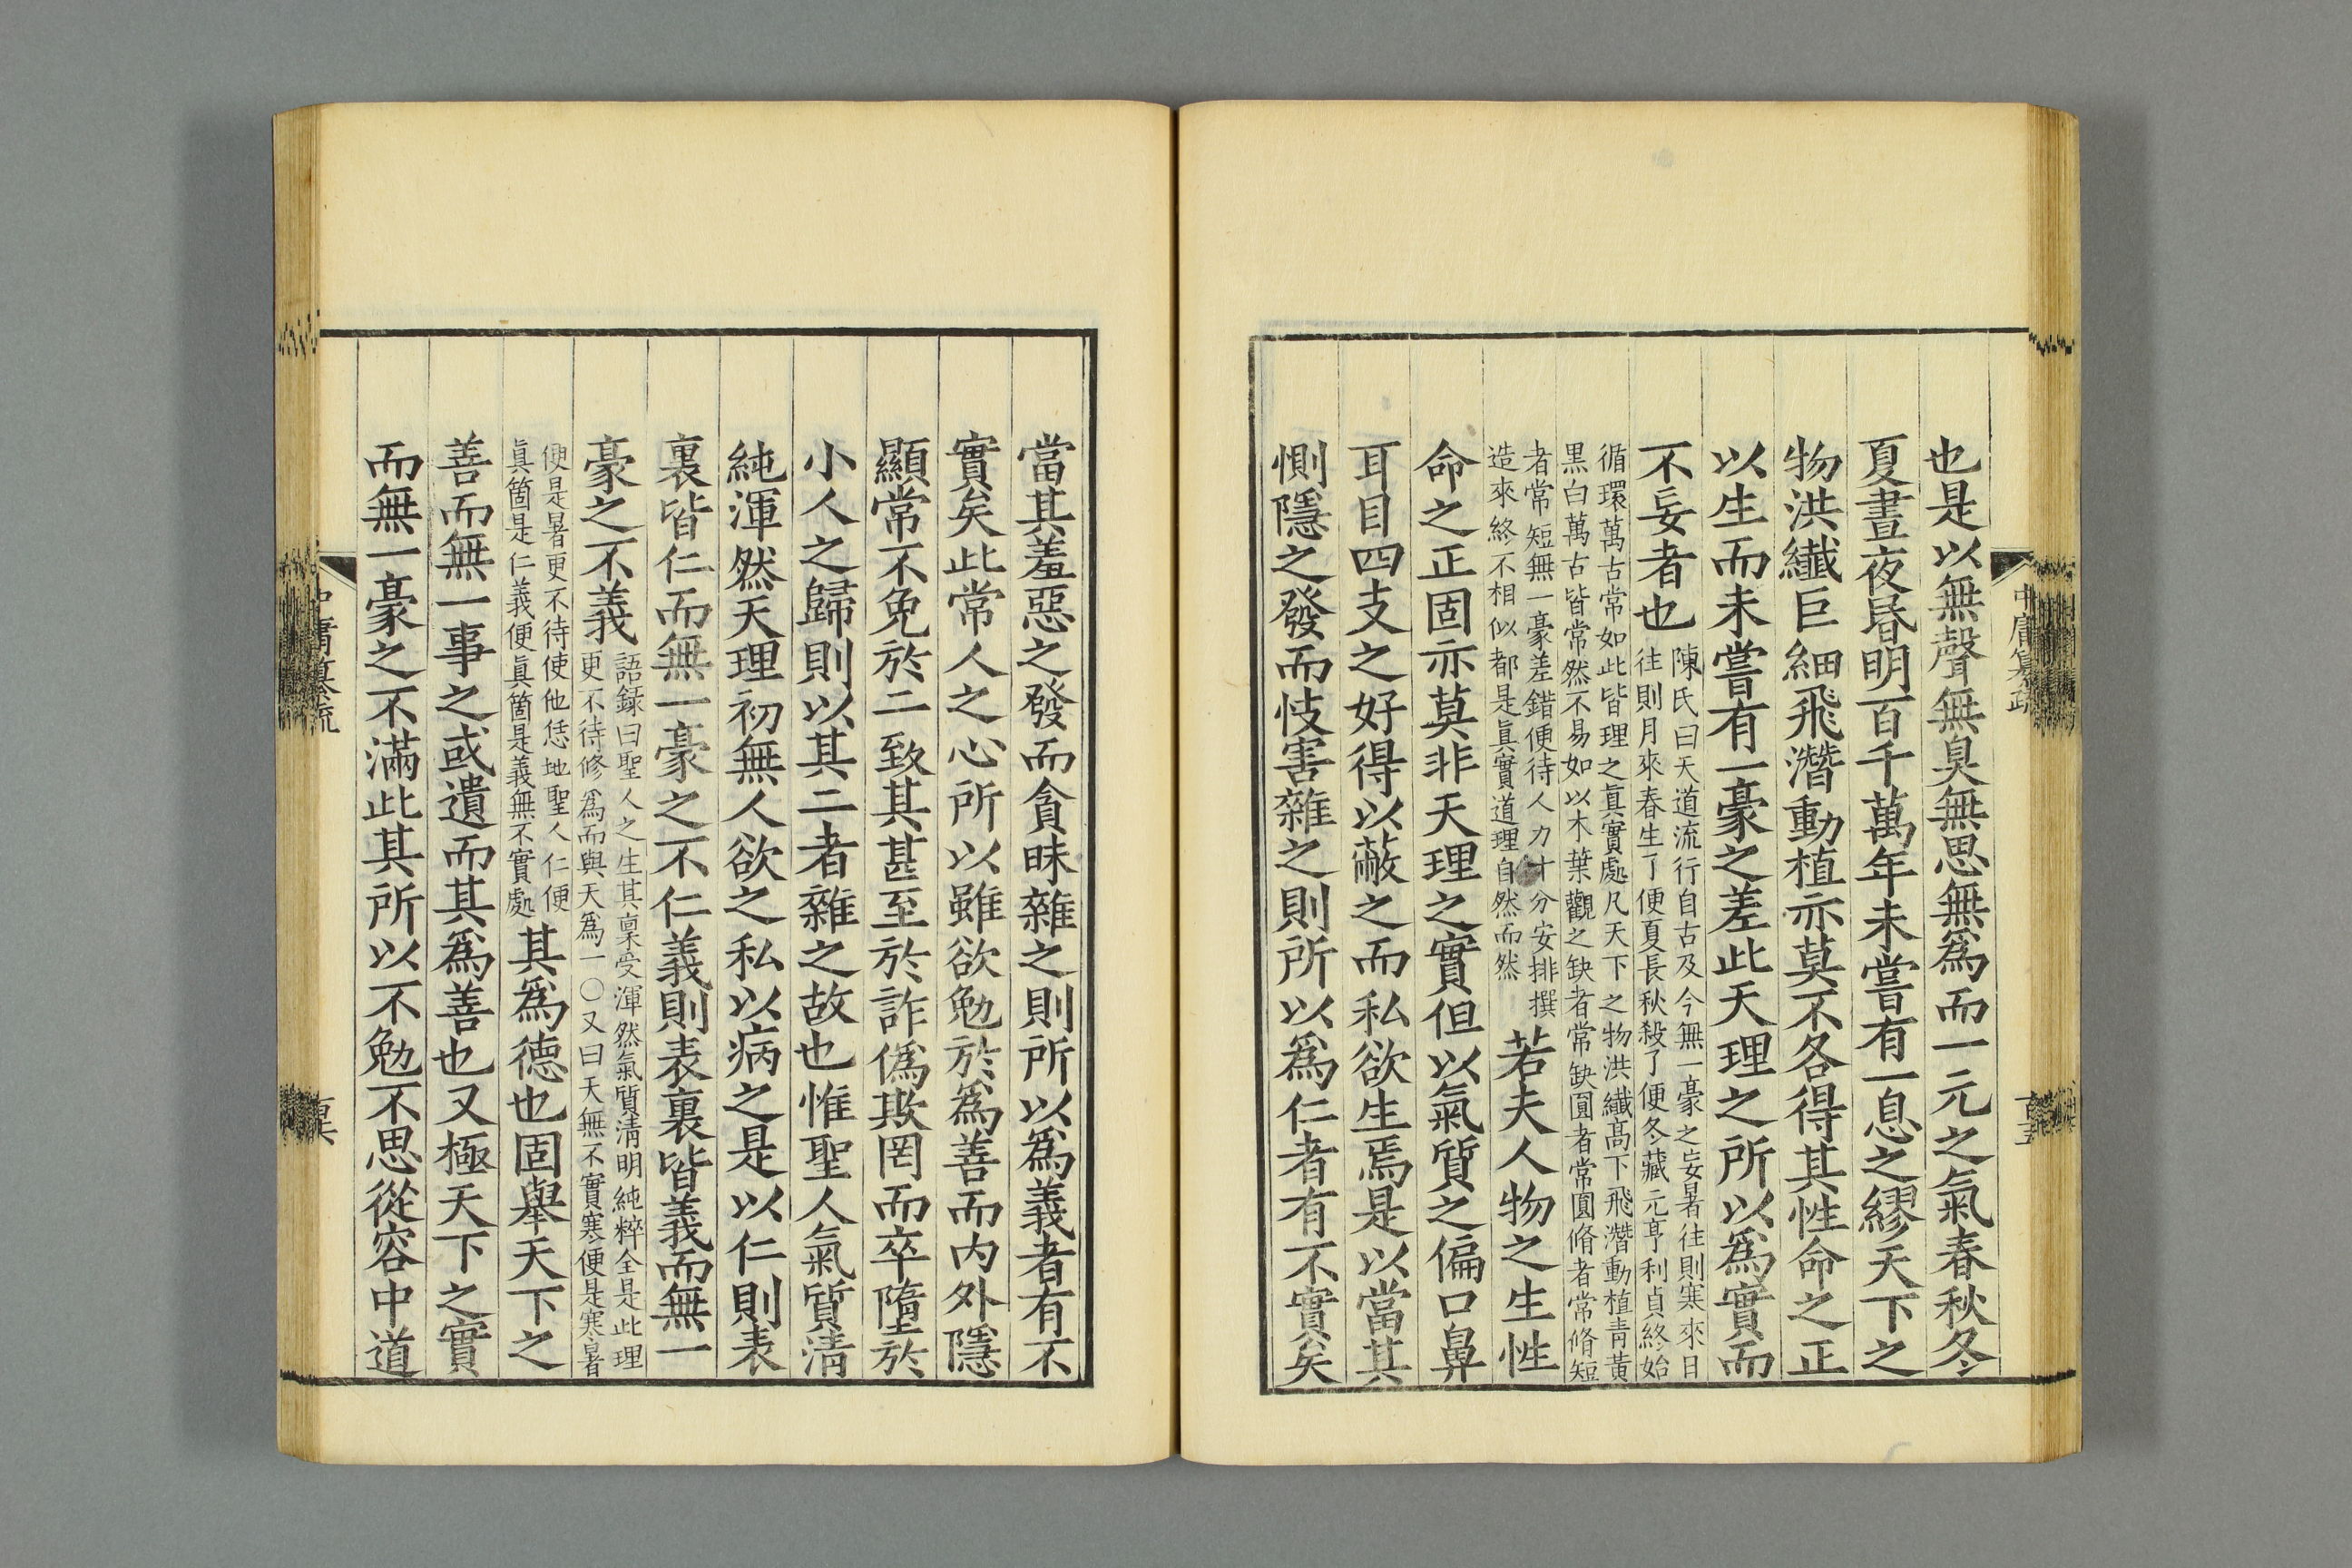 也是以無聲無臭無思無爲而一元之氣春秋冬
夏晝夜昬明百千萬年未嘗有一息之繆天下之
物洪纖巨細飛潛動植亦莫不各得其性命之正
以生而未嘗有一豪之差此天理之所以爲實而
不妄者也
陳氏曰天道流行自古及今無一豪之妄暑往則寒來日
往則月來春生了便夏長秋殺了便冬藏元亨利貞終始
循環萬古常如此皆理之眞實處凡天下之物洪纖髙下飛潛動植青黃
黒白萬古皆常然不易如以木葉觀之缺者常缺圓者常圓脩者常脩短
者常短無一豪差錯便待人力十分安排撰
造來終不相似都是眞實道理自然而然
若夫人物之生性
命之正固亦莫非天理之實但以氣質之偏口鼻
耳目四支之好得以蔽之而私欲生焉是以當其
惻隱之發而忮害雜之則所以爲仁者有不實矣
中庸纂疏
百五
當其羞惡之發而貪昧雜之則所以爲義者有不
實矣此常人之心所以雖欲勉於爲善而内外隱
顯常不免於二致其甚至於詐僞欺罔而卒墮於
小人之歸則以其二者雜之故也惟聖人氣質清
純渾然天理初無人欲之私以病之是以仁則表
裏皆仁而無一豪之不仁義則表裏皆義而無一
豪之不義
語録曰聖人之生其稟受渾然氣質清明純粹全是此理
更不待修爲而與天爲一〇又曰天無不實寒便是寒暑
便是暑更不待使他恁地聖人仁便
眞箇是仁義便眞箇是義無不實處
其爲德也固舉天下之
善而無一事之或遺而其爲善也又極天下之實
而無一豪之不滿此其所以不勉不思從容中道
中庸纂疏
百六